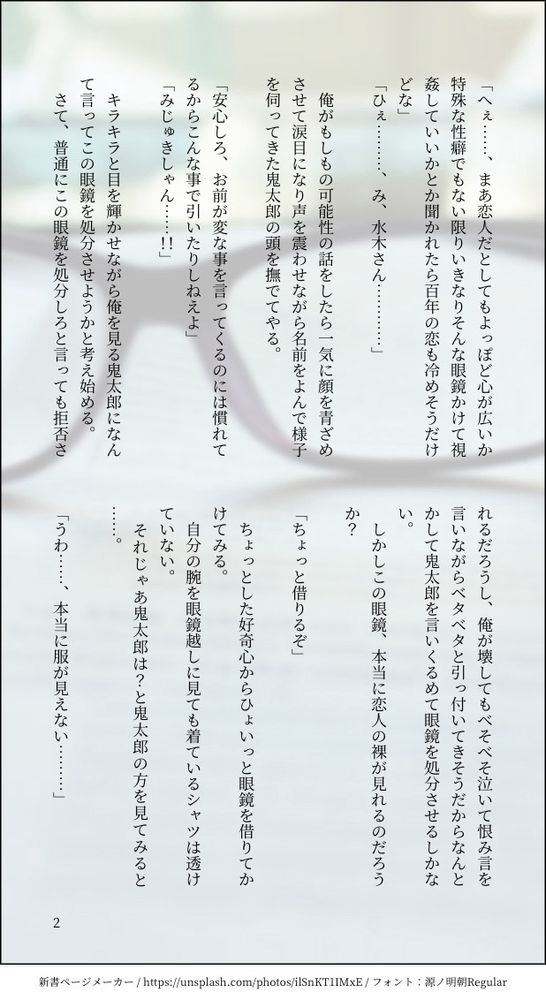 「へぇ……、まあ恋人だとしてもよっぽど心が広いか
特殊な性癖でもない限りいきなりそんな眼鏡かけて視
姦していいかとか聞かれたら百年の恋も冷めそうだけ
どな」
「ひぇ………、み、水木さん…………」
俺がもしもの可能性の話をしたら一気に顔を青ざめ
させて涙目になり声を震わせながら名前をよんで様子
を伺ってきた鬼太郎の頭を撫でてやる。
「安心しろ、お前が変な事を言ってくるのには慣れて
るからこんな事で引いたりしねえよ」
「みじゅきしゃん……!!」
キラキラと目を輝かせながら俺を見る鬼太郎になん
て言ってこの眼鏡を処分させようかと考え始める。
さて、普通にこの眼鏡を処分しろと言っても拒否さ
れるだろうし、俺が壊してもべそべそ泣いて恨み言を
言いながらベタベタと引っ付いてきそうだからなんと
かして鬼太郎を言いくるめて眼鏡を処分させるしかな
い。
しかしこの眼鏡、本当に恋人の裸が見れるのだろう
か?
「ちょっと借りるぞ」
ちょっとした好奇心からひょいっと眼鏡を借りてか
けてみる。
自分の腕を眼鏡越しに見ても着ているシャツは透け
ていない。
それじゃあ鬼太郎は?と鬼太郎の方を見てみると
……。
「うわ……、本当に服が見えない………」
2
新書ページメーカー / https://unsplash.com/photos/ilSnKT1IMxE / フォント：源ノ明朝Regular